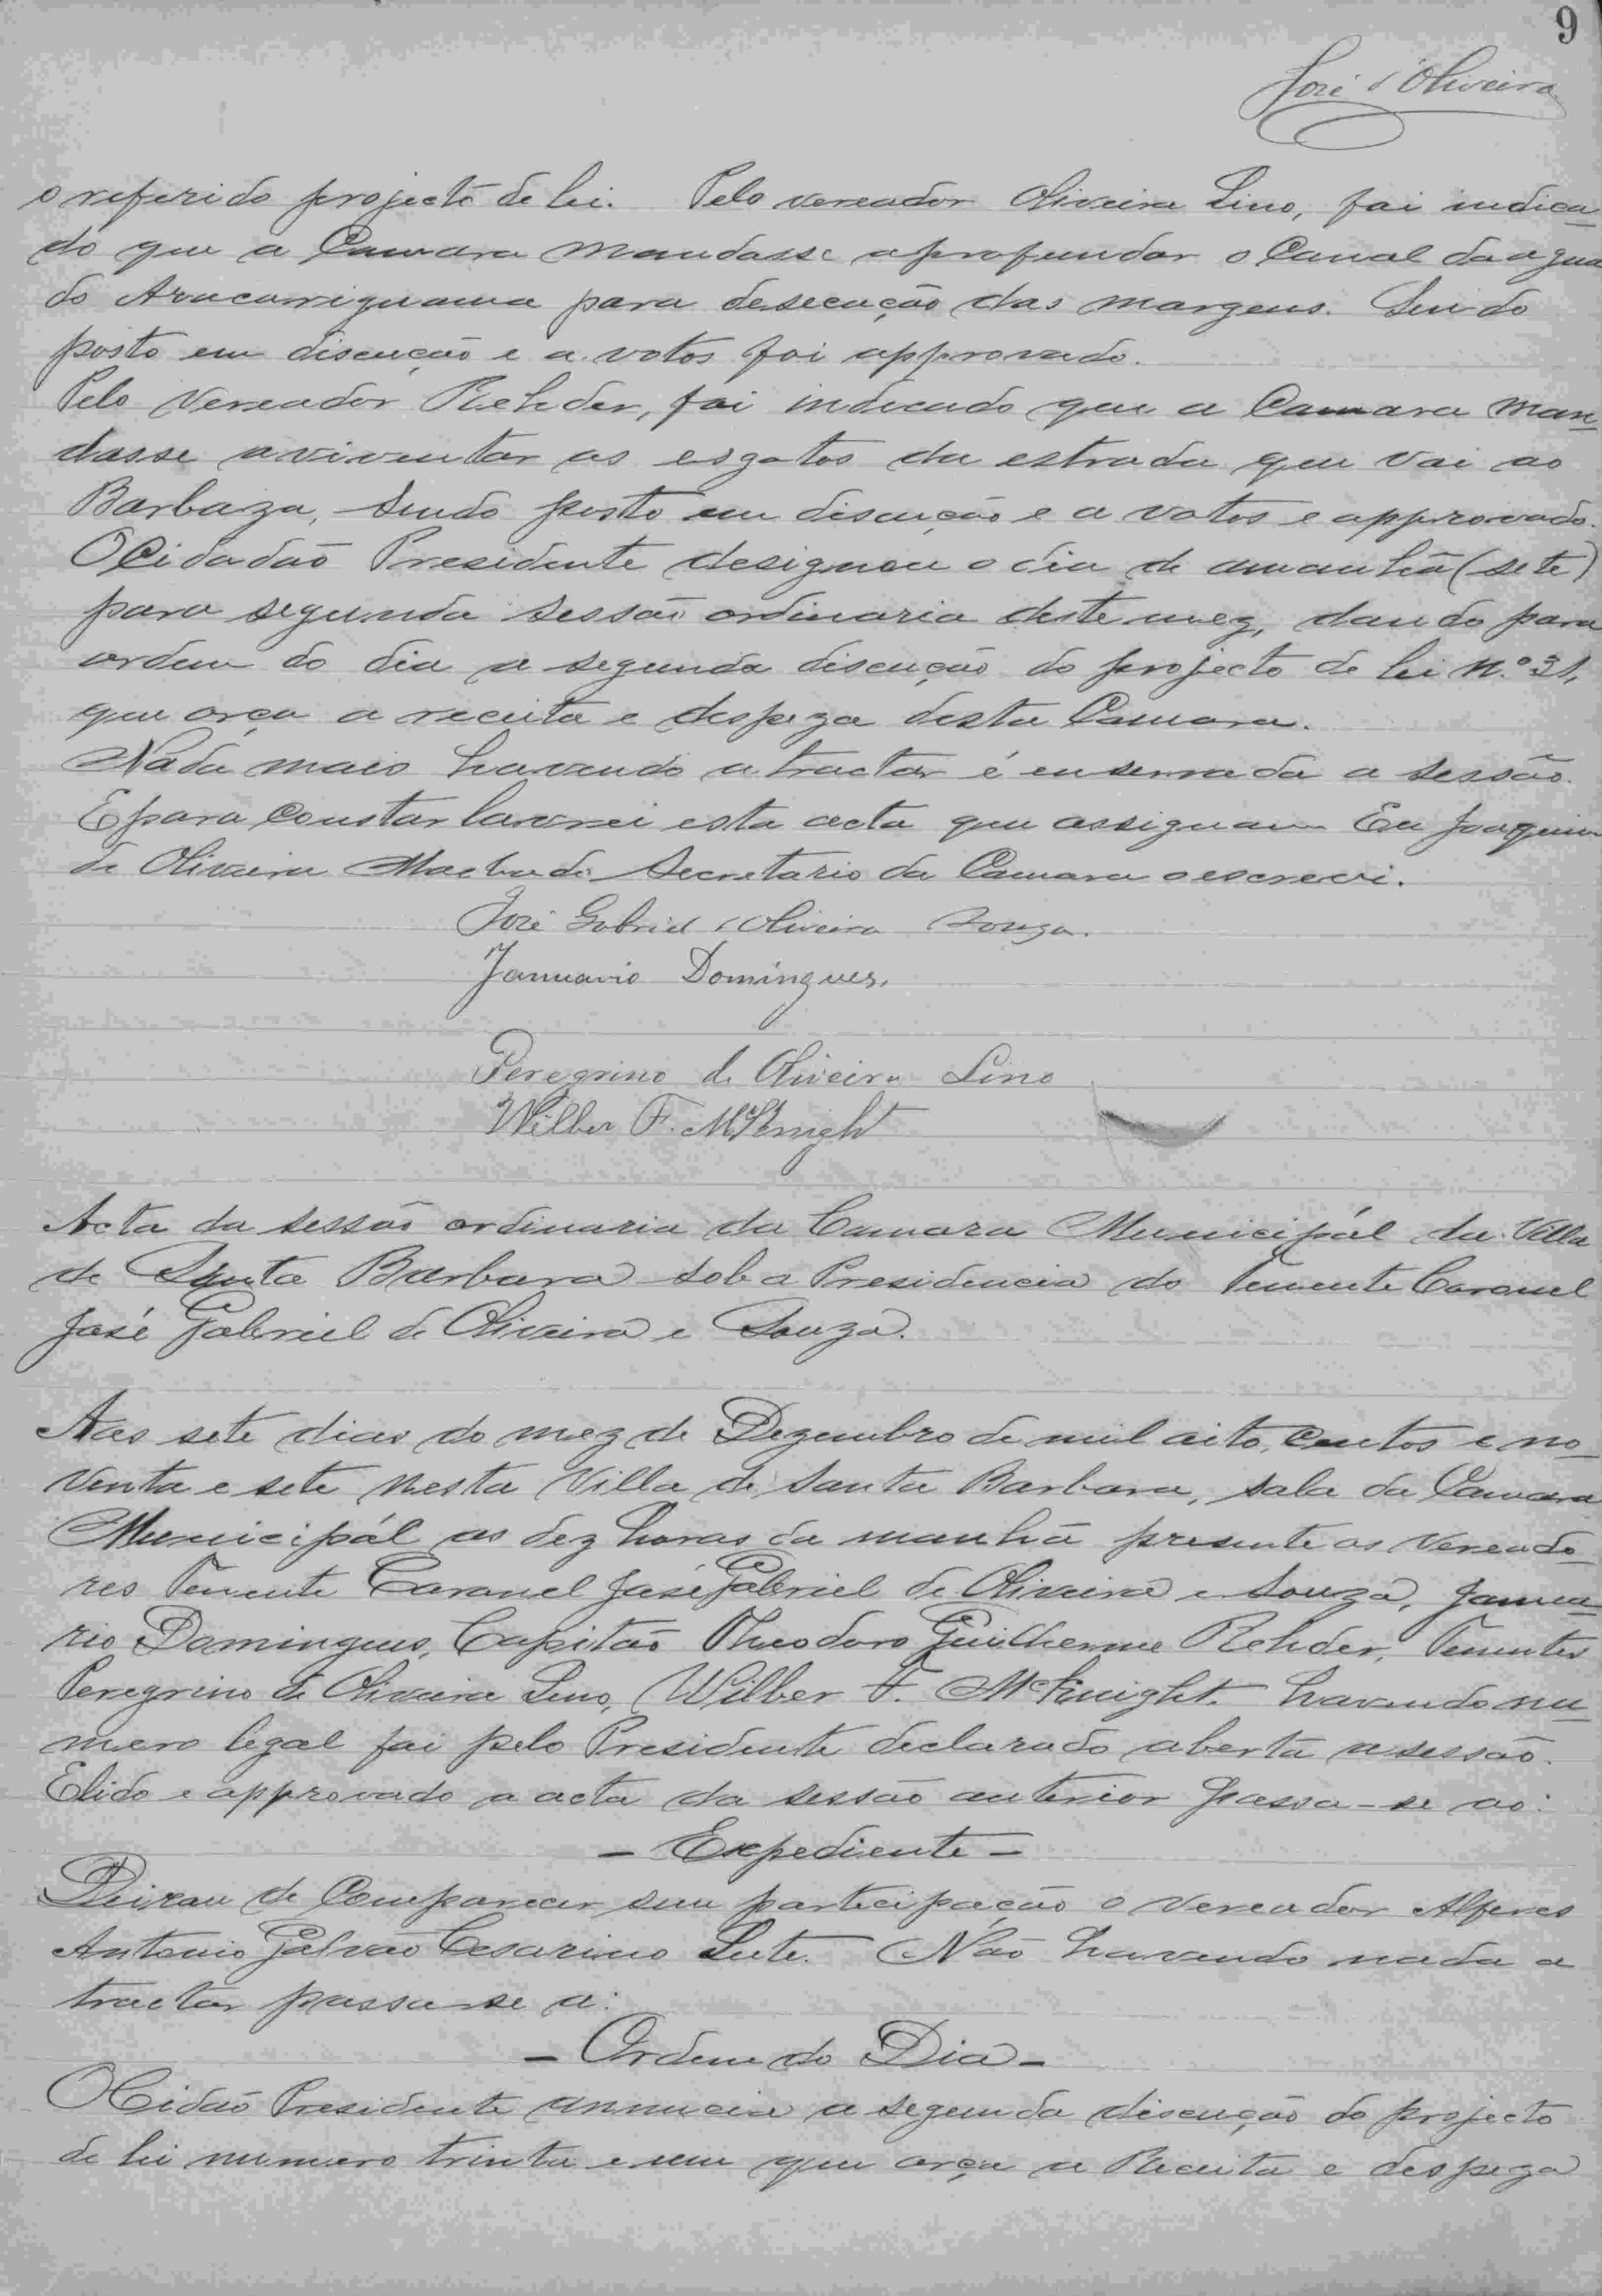 9
José d'Oliveira
o referido projecto de lei. Pelo vereador Oliveira Lino, foi indica
do que a Camara mandasse aprofundar o Canal da agua
do Aracarriguama para desecação das margens. Sendo
posto em discução e a votos foi approvado.
Pelo Vereador Rehder, foi indicado que a Camara man
dasse aviventar os esgotos da estrada que vai ao
Barbaza, sendo posto em discução e a votos e approvado.
O Cidadão Presidente designou o dia de amanhã (sete)
para segunda sessão ordinaria deste mez, dando para
ordem do dia a segunda discução do projecto de lei N.º 31,
que orça a receita e despeza desta Camara.
Nada mais havendo a tractar é enserrada a sessão.
E para Constar lavrei esta acta que assignam Eu Joaquim
de Oliveira Machado Secretario da Camara o escrevi.
José Gabriel d'Oliveira Souza.
Januario Domingues.
Peregrino de Oliveira Lino
Wilber F. McKnight
Acta da sessão ordinaria da Camara Municipál da Villa
de Santa Barbara sob a Presidencia do Tenente Coronel
José Gabriel de Oliveira e Souza.
Aos sete dias do mez de Dezembro de mil oito, centos e no
venta e sete nesta Villa de Santa Barbara, sala da Camara
Municipál as dez horas da manhã presente os Vereado
res Tenente Coronel José Gabriel de Oliveira e Souza, Janua
rio Domingues, Capitão Theodoro Guilherme Rehder, Tenentes
Peregrino de Oliveira Lino, Wilber F. McKnight. havendo nu
mero legal foi pelo Presidente declarado aberta a sessão.
E lido e approvado a acta da sessão anterior passa-se ao:
- Expediente -
Deixou de Comparecer sem participação o Vereador Alferes
Antonio Galvão Cesarino Leite. Não havendo nada a
tractar passa-se a:
- Ordem do Dia -
O Cidão Presidente annuncia a segunda discução do projecto
de lei numero trinta e um que orça a Receita e despeza